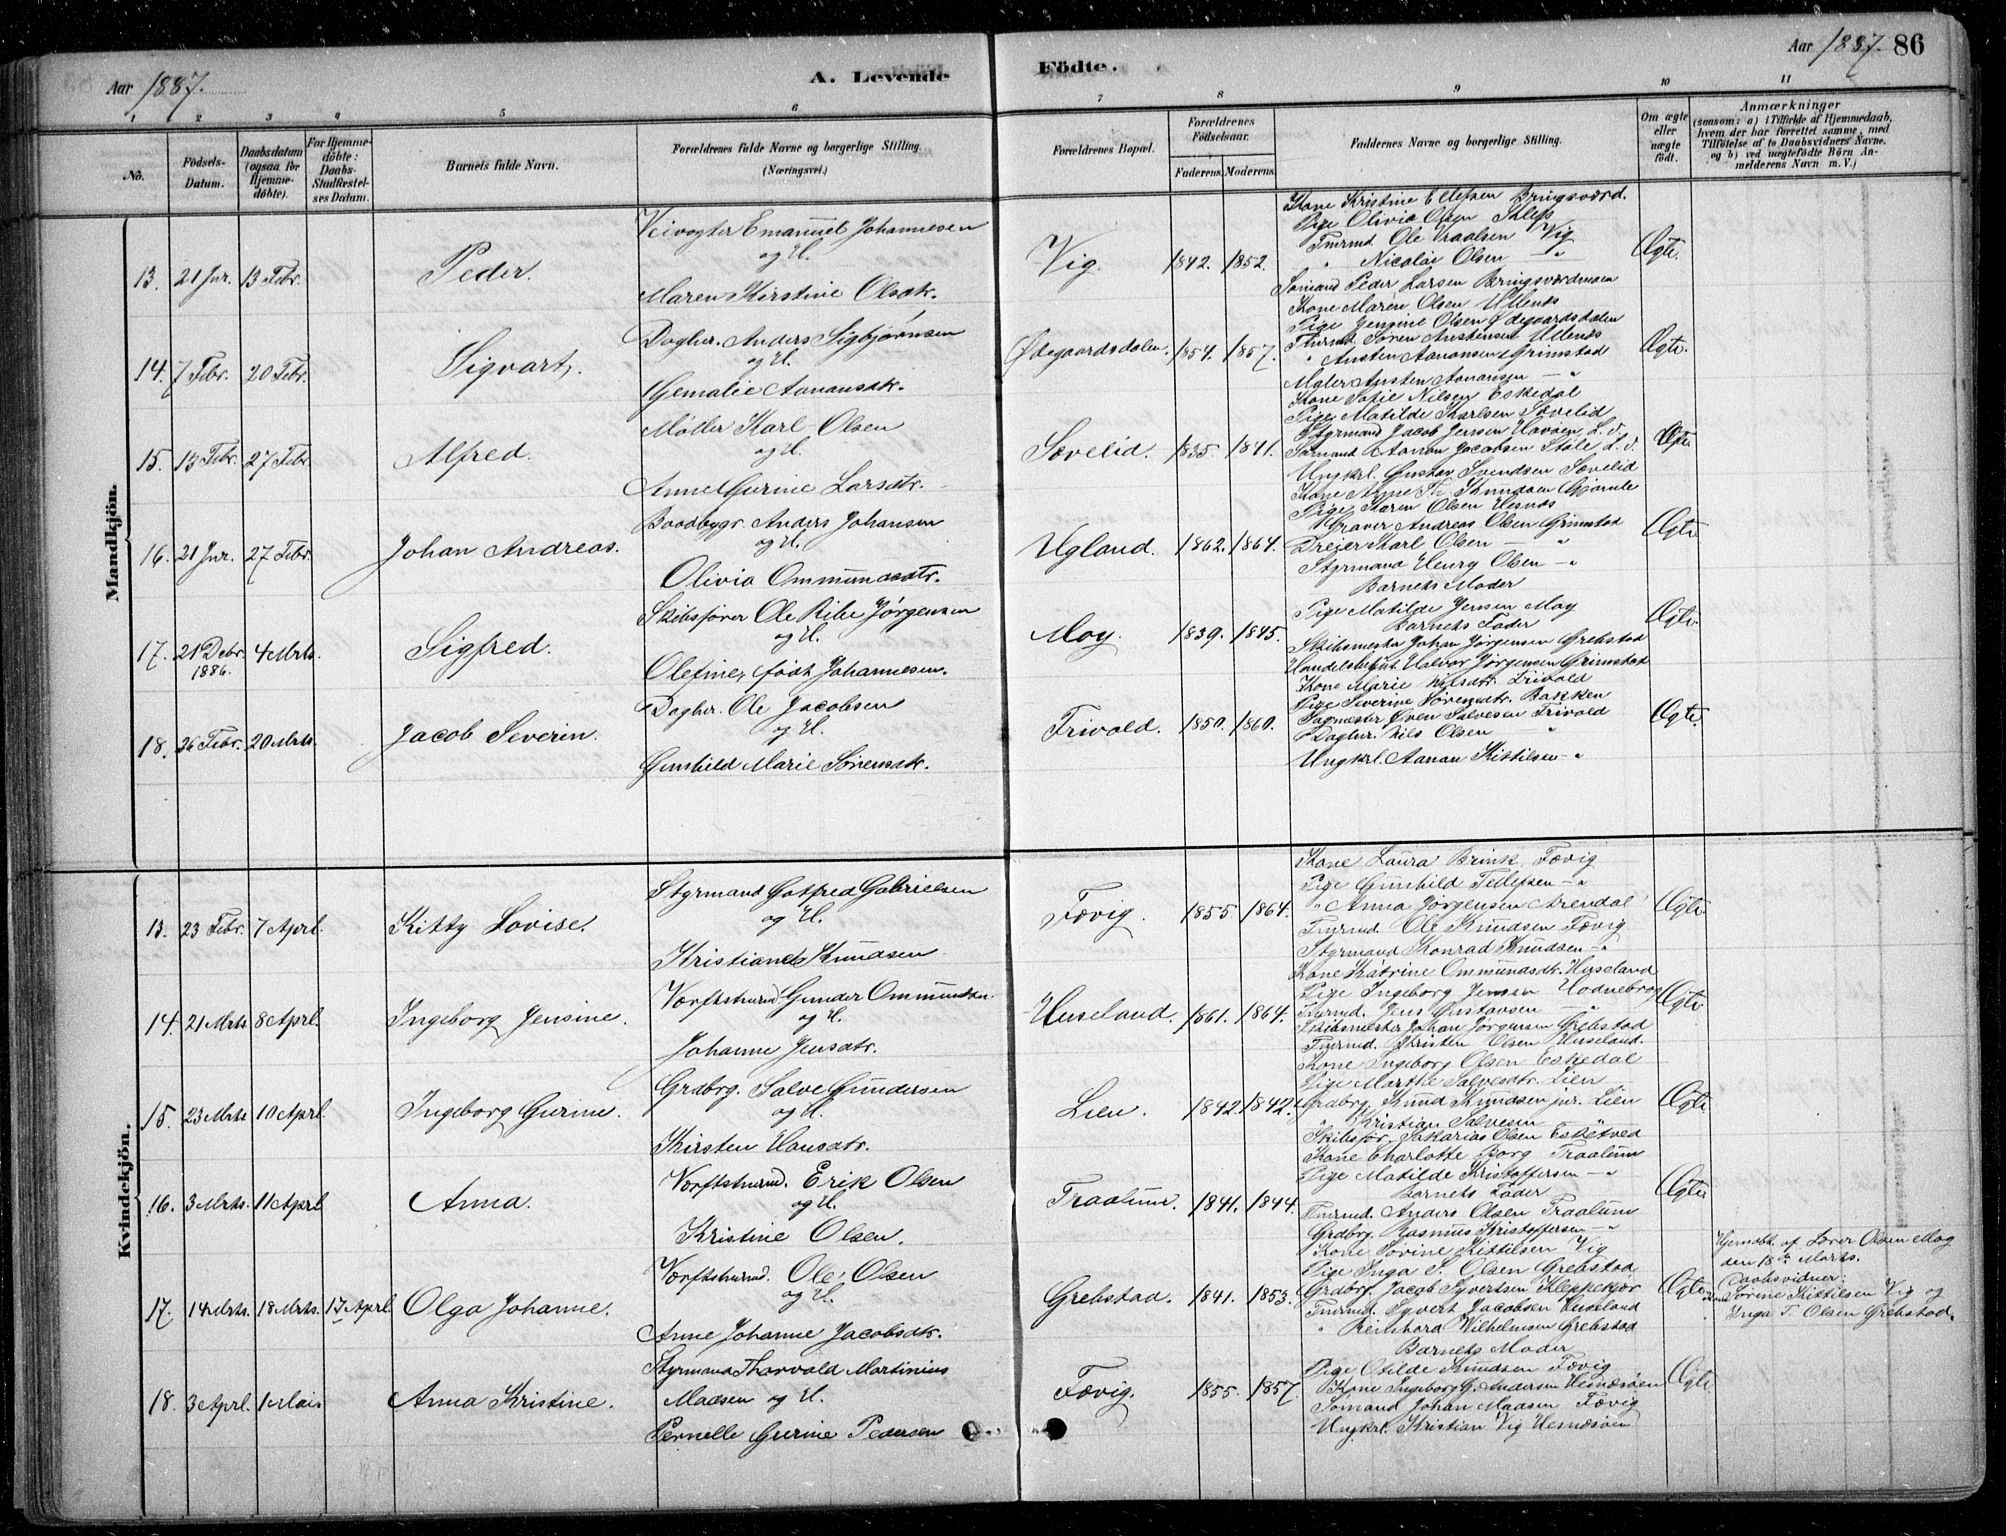 Aar 1887.
A. Levende
Födte.
Aar 1887. 86
1 2 3 4 5 6 7 8 9 10 11
No.
Födsels-Datum.
Daabsdatum (ogsaa for Hjemme-döbte).
For Hjemme-döbte: Daabs-Stadfæstel-ses Datum.
Barnets fulde Navn.
Forældrenes fulde Navne og borgerlige Stilling. (Næringsvei.)
Forældrenes Bopæl.
Forældrenes Födselsaar.
Faderens. Moderens.
Faddernes Navne og borgerlige Stilling.
Om ægte eller uægte födt.
Anmærkninger
(saasom: a) i Tilfælde af Hjemmedaab, hvem der har forrettet samme, med Tilföielse af to Daabsvidners Navne. og b) ved uægtefödte Börn Anmelderens Navn m. V.)
Mandkjön.
13. 21 Jnr. 13 Febr. Peder.
Veivogter Emanuel Johannesen
og H.
Maren Kirstine Olsdtr.
Vig. 1842. 1852.
Kone Kristine Ellefsen Bringsværd.
Pige Olivia Olsen
Tmrmd. Ole Olsen Vig
" Nicolai Olsen — "
Sömand Peder Larsen
Ægte.
14. 7 Febr. 20 Febr. Sigvart.
Dagbr. Anders Sigbjørnsen
og H.
Gemalie Aanonsdtr.
Ødegaardsdalen. 1854. 1857.
Kone Maren Olsen Ullenes
Pige Jensine Olsen Ødegaardsdalen
Tmrmd. Søren Austensen Ullenes
" Austen Aanonsen Grimstad
Mgler Austen Aanonsen — "
Ægte.
15. 13 Febr. 27 Febr. Alfred.
Møller Karl Olsen
og H.
Anne Gurine Larsdtr.
Sævelid. 1835. 1841.
Kone Sofie Nilsen Eskedal
Pige Matilde Karlsen Sævelid
Styrmand Jacob Jensen
Sömand Aanon Jacobsen
Ungkrl. Gustav Svendsen Sævelid
Ægte
16. 21 Jnr. 27 Febr. Johan Andreas.
Baadbygr. Anders Johansen
og H.
Olivia Ommundsdtr.
Ugland. 1862. 1864.
Kone Anne Th. Knudsen
Pige Karen Olsen Hesnes
Graver Andreas Olsen Grimstad
Dreier Karl Olsen — "
Styrmand Henry Olsen — "
Ægte
17. 21 Debr. 1886. 4 Mrts. Sigfred.
Skibsfører Ole Ribe Jørgensen
og H.
Olefine, født Johannesen.
Moy. 1839. 1845.
Barnets Moder
Pige Matilde Jensen Moy
Barnets Fader
Skibsmester Johan Jørgensen Grebstad
Halvor Jørgensen Grimstad
Ægte
18. 26 Febr. 20 Mrts. Jacob Severin.
Dagbr. Ole Jacobsen
og H.
Gunhild Marie Sørensdtr.
Frivold. 1850. 1860.
Kone Marie Nilsdtr. Frivold
Pige Severine Sørensdtr. Bakken
Sagmester Even Salvesen Frivold
Dagbr. Nils Olsen "
Ungkrl. Aanon Kittilsen — "
Ægte.
Kvindekjön.
13. 23 Febr. 7 Aprl. Kitty Lovise.
Styrmand Gotfred Gabrielsen
og H.
Kristiane Knudsen
Fævig. 1855. 1864.
Kone Laura Brink, Fævig
Pige Gunhild Tellefsen — "
" Anna Jørgensen Arendal
Tmrmd. Ole Knudsen Fævig
Styrmand Konrad Knudsen — "
Ægte
14. 21 Mrts. 8 Aprl. Ingeborg Jensine.
Værftstmrmd. Gunder Ommundsen.
og H.
Johanne Jensdtr.
Huseland. 1861. 1864.
Kone Katrine Ommundsdtr. Huseland
Pige Ingeborg Jensen Hodnebrog
Tmrmd. Jens Gustavsen "
Skibsmester Johan Jørgensen Grebstad
Tmrmd. Kristen Olsen Huseland.
Ægte
15. 23 Mrts. 10 Aprl. Ingeborg Gurine.
Grdbrg. Salve Gundersen
og H.
Kirsten Hansdtr.
Lien. 1842. 1842.
Kone Ingeborg Olsen Eskedal
Pige Marthe Salvesdtr. Lien
Grdbrg. Knud Knudsen jnr. Lien
" Kristian Salvesen
Skibsfør. Sakarias Olsen
Ægte
16. 3 Mrts. 11 Aprl. Anna.
Værftstmrmd. Erik Olsen
og H.
Kristine Olsen.
Traalum. 1841. 1844.
Kone Charlotte Borg Traalum
Pige Matilde Kristoffersen — "
Barnets Fader
Tmrmd. Anders Olsen Traalum
Grdbrg. Rasmus Kristoffersen — "
Ægte
17. 14 Mrts. 18 Mrts. 17 Aprl. Olga Johanne.
Værftstmrmd. Ole Olsen
og H.
Anne Johanne Jacobsdtr.
Grebstad. 1841. 1853.
Kone Sørine Kittilsen Vig
Pige Inga T. Olsen Grebstad
Grdbrg. Jacob Syvertsen Klepkekjær
Tmrmd. Syvert Jacobsen Huseland
" Reinhard Vilhelmsen Grebstad
Ægte
Hjemdbt. af Lærer Olsen Moy
den 18de Marts.
Daabsvidner:
Kone Sørine Kittilsen Vig og
Inga T. Olsen Grebstad.
18. 3 Aprl. 1 Mais Anna Kristine.
Styrmand Thorvald Martinius
Madsen og H.
Pernelle Gurine Pedersen
Fævig. 1855. 1857.
Barnets Moder
Pige Otilde Knudsen Fævig
Kone Ingeborg G. Andersen Hesnesøen
Sømand Johan Madsen Fævig
Ungkrl. Kristian Vig Hesnesøen
Ægte.